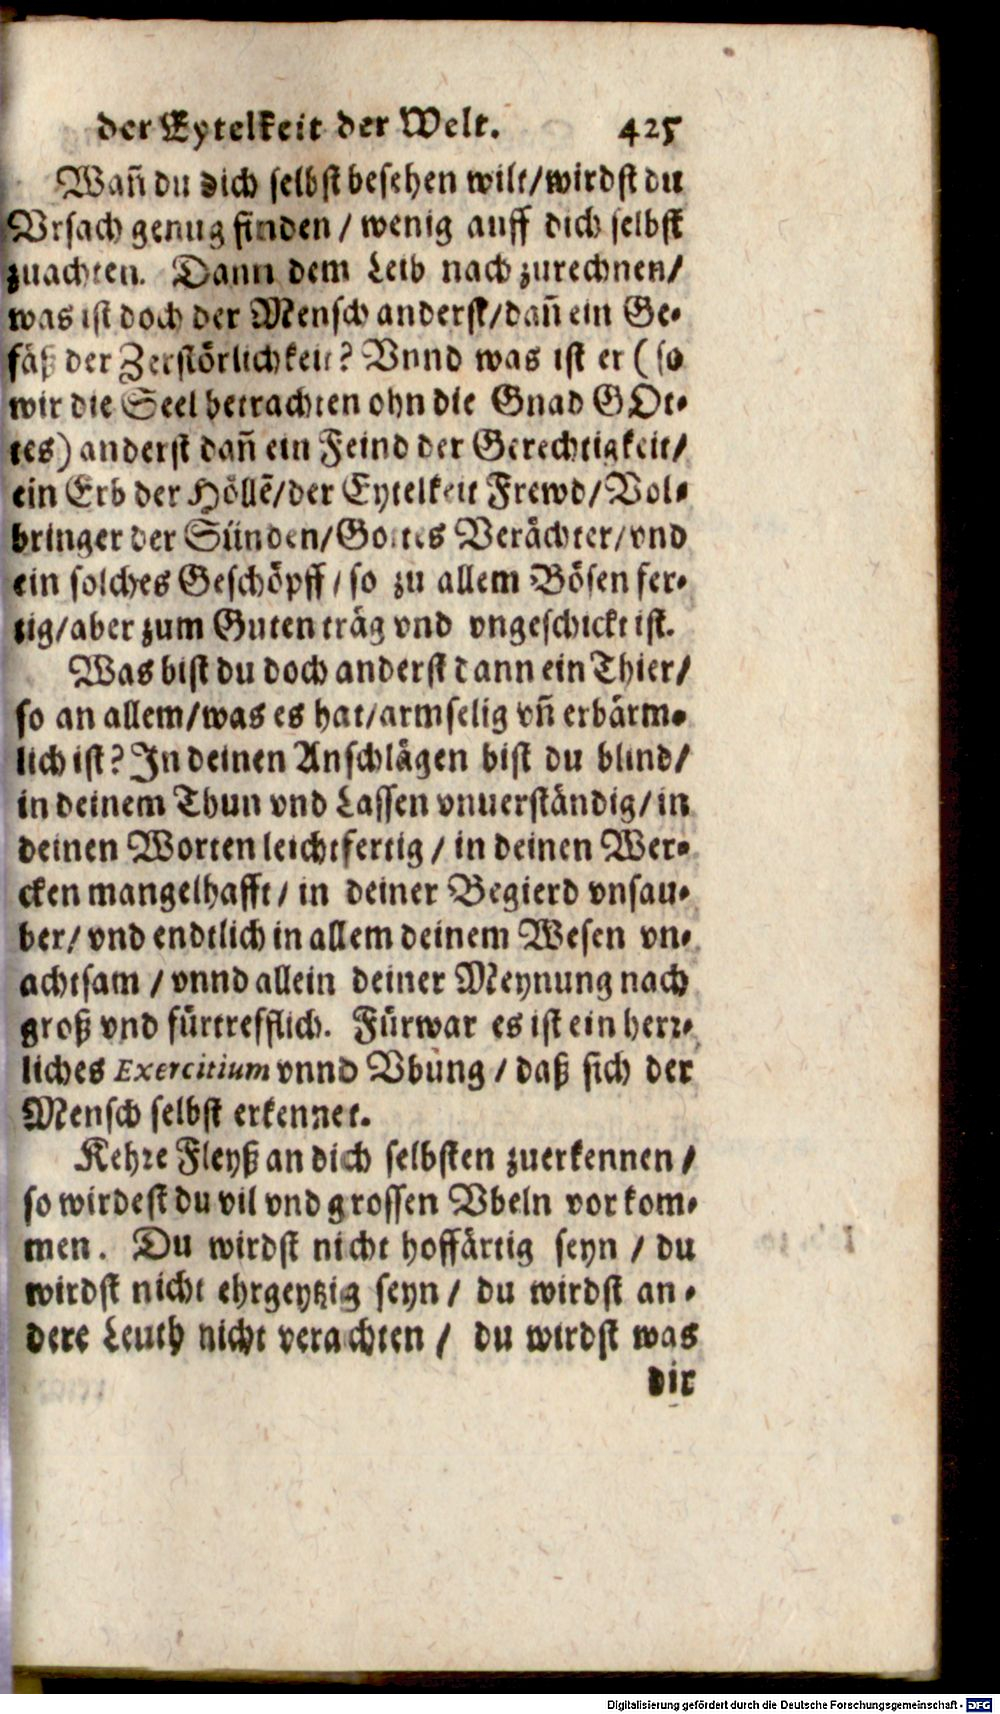 der Eytelkeit der Welt. 425
Wañ du dich selbst besehen wilt/wirdst du
Vrsach genug finden / wenig auff dich selbst
zuachten. Dann dem Leib nach zurechnen/
was ist doch der Mensch anderst/dañ ein Ge-
fäß der Zerstörlichkeit? Vnnd was ist er (so
wir die Seel betrachten ohn die Gnad GOt-
tes) anderst dañ ein Feind der Gerechtigkeit/
ein Erb der Höllē/der Eytelkeit Frewd/Vol-
bringer der Sünden/Gottes Verächter/vnd
ein solches Geschöpff / so zu allem Bösen fer-
tig/aber zum Guten träg vnd vngeschickt ist.
Was bist du doch anderst dann ein Thier/
so an allem/was es hat/armselig vñ erbärm-
lich ist? In deinen Anschlägen bist du blind/
in deinem Thun vnd Lassen vnuerständig/in
deinen Worten leichtfertig / in deinen Wer-
cken mangelhafft / in deiner Begierd vnsau-
ber/ vnd endtlich in allem deinem Wesen vn-
achtsam / vnnd allein deiner Meynung nach
groß vnd fürtrefflich. Fürwar es ist ein herr-
liches Exercitium vnnd Vbung / daß sich der
Mensch selbst erkennet.
Kehre Fleyß an dich selbsten zuerkennen /
so wirdest du vil vnd grossen Vbeln vorkom-
men. Du wirdst nicht hoffärtig seyn / du
wirdst nicht ehrgeytzig seyn / du wirdst an-
dere Leuth nicht verachten / du wirdst was
dir
Digitalisierung gefördert durch die Deutsche Forschungsgemeinschaft - DFG